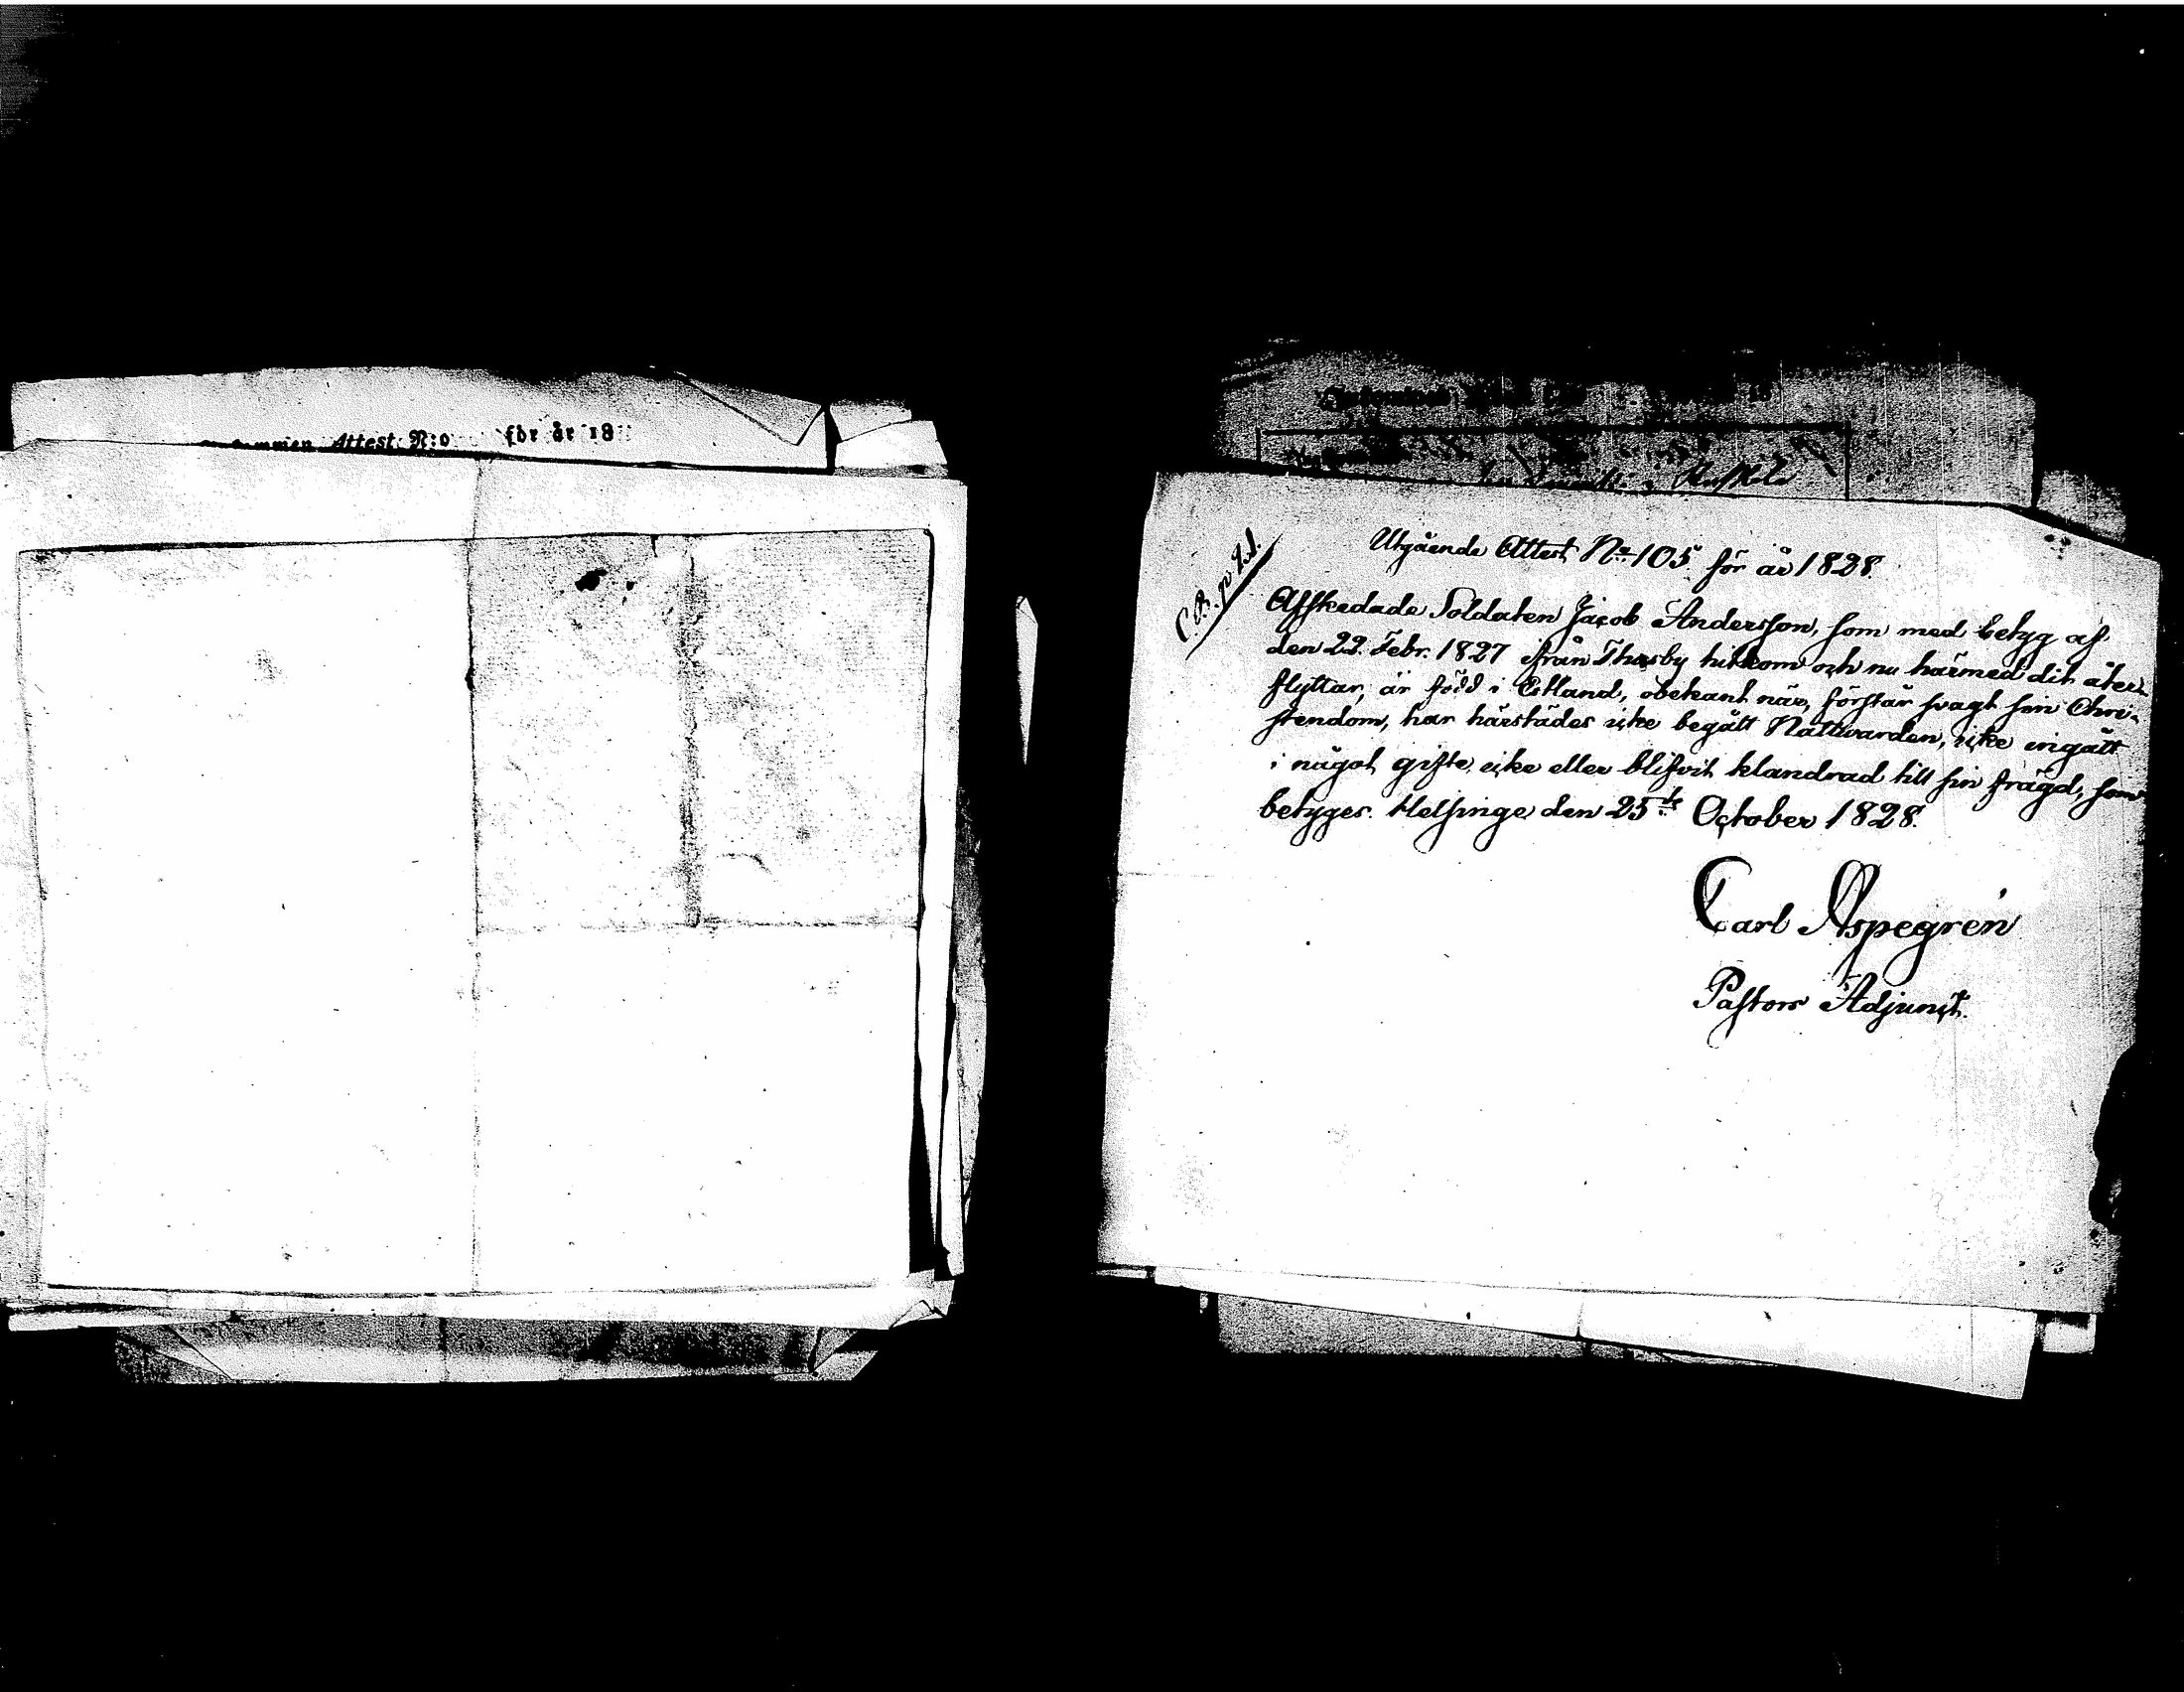 Attest. N:o för år 18
Utgående Attest No 105 för år 1828.
Afskedade Soldaten Jacob Andersson, som med betyg af
den 22. Febr. 1827 från Thusby hitkom och nu härmed dit åter-
flyttar, är född i Estland, obekant när, förstår svagt sin Chri-
stendom, har härstädes icke begått Nattwarden, icke ingått
i något gifte, icke eller blifvit klandrad till sin frägd, som
betyges. Helsinge den 25te October 1828.
Carl Aspegren
Pastors Adjunct.